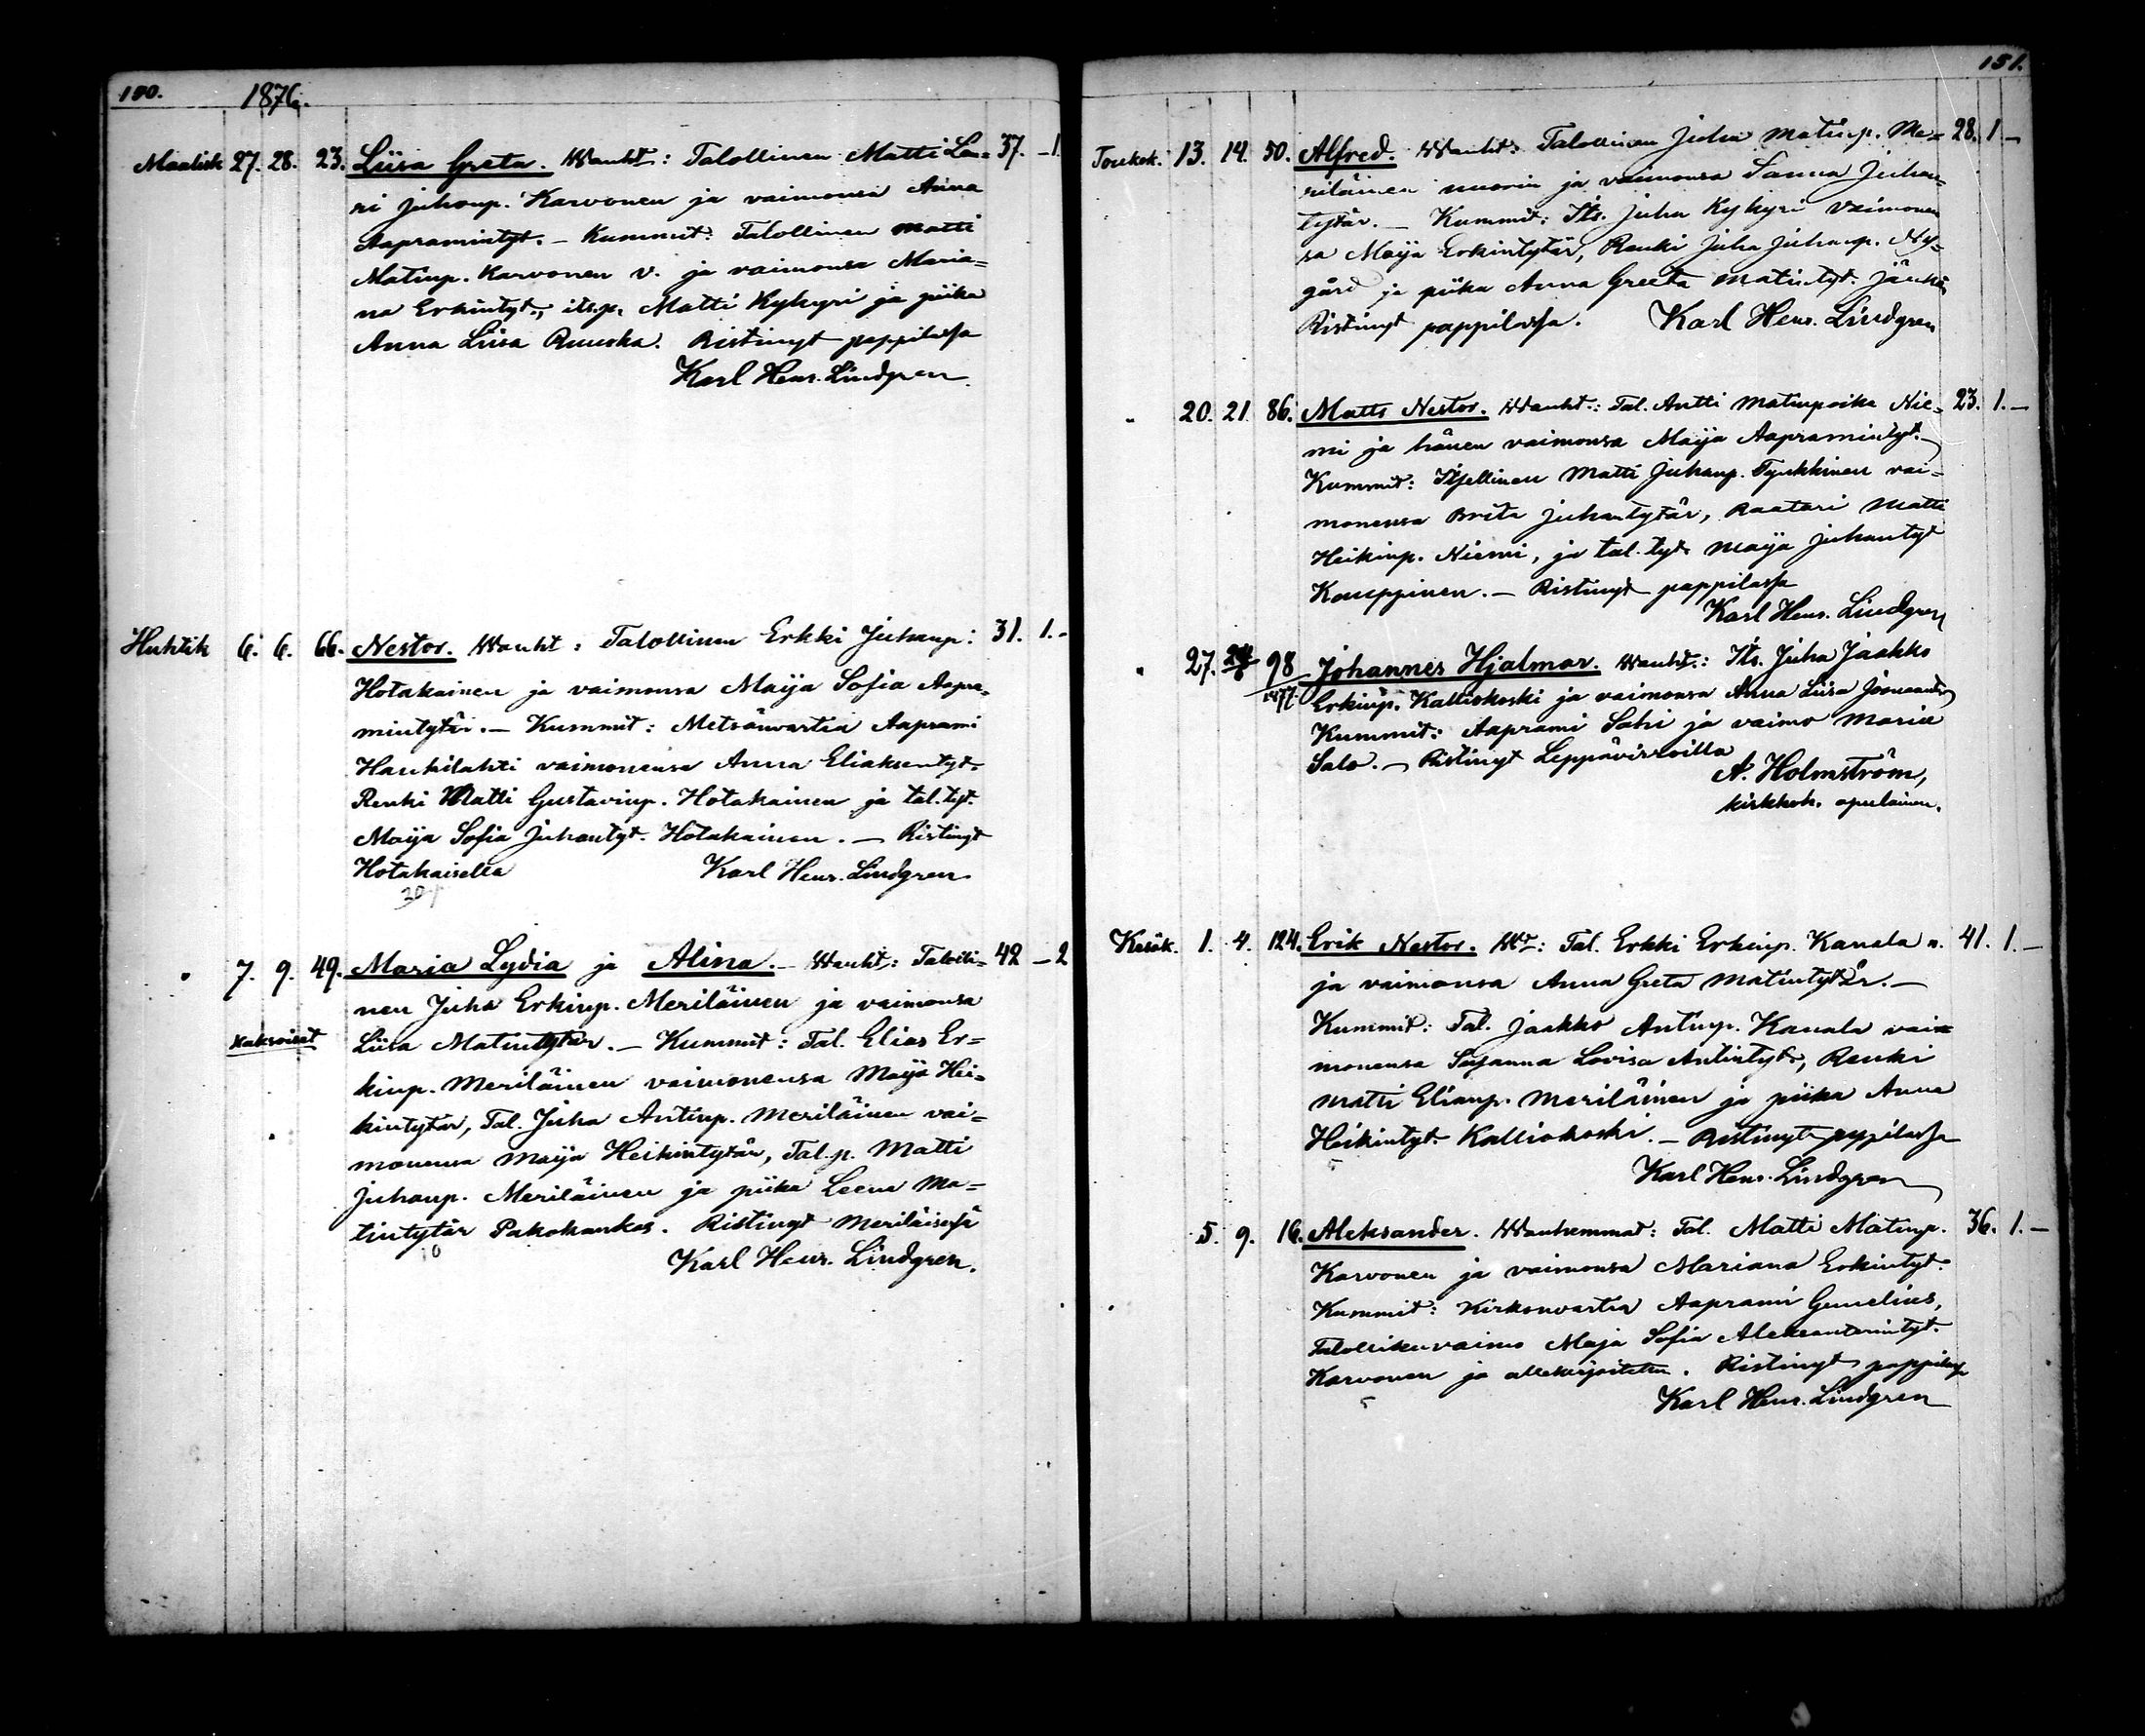 150.
1876.
Maalisk 27. 28. 23. Liisa Greta. Wanht: Talollinen Matti Lau= 37. – 1
ri Juhonp. Karvonen ja vaimonsa Anna
Aapramintyt. – Kummit: Talollinen Matti
Matinp. Karvonen v. ja vaimonsa Maria=
na Erkintyt., its.p. Matti Kykyri ja piika
Anna Liisa Ruuska. Ristinyt pappilassa
Karl Henr. Lindgren.
Huhtik 6. 6. 66. Nestor. Wanht: Talollinen Erkki Juhanp: 31. 1. –
Hotakainen ja vaimonsa Maija Sofia Aapra=
mintytär. – Kummit: Metsänvartia Aaprami
Haukilahti vaimonensa Anna Eliaksentyt.
Renki Matti Gustavinp. Hotakainen ja tal. tyt.
Maija Sofia Juhantyt. Hotakainen. – Ristinyt
Hotakaisella Karl Henr. Lindgren
20
" 7. 9. 49. Maria Lydia ja Alina. – Wanht: Talolli= 42 – 2
nen Juha Erkinp. Meriläinen ja vaimonsa
Kaksoiset Liisa Matintytär. – Kummit: Tal. Elias Er=
kinp. Meriläinen vaimonensa Maija Hei=
kintytär, Tal. Juha Antinp. Meriläinen vai=
monensa Maija Heikintytär, Tal. p. Matti
Juhanp. Meriläinen ja piika Leena Ma=
tintytär Pakokankas. Ristinyt Meriläisessä
10
Karl Henr. Lindgren.
151.
Toukok. 13. 14. 50. Alfred. Wanht: Talollinen Juha Matinp. Me= 28. 1 –
riläinen nuorin ja vaimonsa Sanna Juhan=
tytär. – Kummit: Its. Juha Kykyri vaimonen
sa Maija Erkintytär, Renki Juha Juhanp. Ny=
gård ja piika Anna Greeta Matintyt. Jänkä
Ristinyt pappilassa. Karl Henr. Lindgren
" 20. 21. 86. Matts Nestor. Wanht: Tal. Antti Matinpoika Nie= 23. 1. –
mi ja hänen vaimonsa Maija Aapramintyt. –
Kummit: Itsellinen Matti Juhanp. Tyukkinen vai=
monensa Brita Juhantytär, Raatari Matti
Heikinp. Niemi, ja tal. tyt. Maija Juhantyt
Kauppinen. – Ristinyt pappilassa
Karl Henr. Lindgren
" 27. 98 1877. Johannes Hjalmar. Wanht.: Its. Juha Jaakko
Erkinp. Kalliokoski ja vaimonsa Anna Liisa
Kummit: Aaprami Salo ja vaimo Maria
Salo. – Ristinyt Leppävirroilla
A. Holmström,
kirkkoh. apulainen.
Kesäk. 1. 4. 124. Erik Nestor. Wr: Tal. Erkki Erkinp. Kanala n. 41. 1. –
ja vaimonsa Anna Greta Matintytär. –
Kummit: Tal. Jaakko Antinp. Kanala vai=
monensa Susanna Lovisa Antintyt., Renki
Matti Elianp. Meriläinen ja piika Anna
Heikintyt. Kalliokoski. – Ristinyt pappilassa
5
Karl Henr. Lindgren
5. 9. 16. Aleksander. Wanhemmat: Tal. Matti Matinp. 36. 1. –
Karvonen ja vaimonsa Mariana Erkintyt.
Kummit: Kirkonvartia Aaprami Gumelius,
Talollisen vaimo Maja Sofia Aleksanterintyt.
Karvonen ja allekirjoitettu. Ristinyt pappilassa
5
Karl Henr. Lindgren